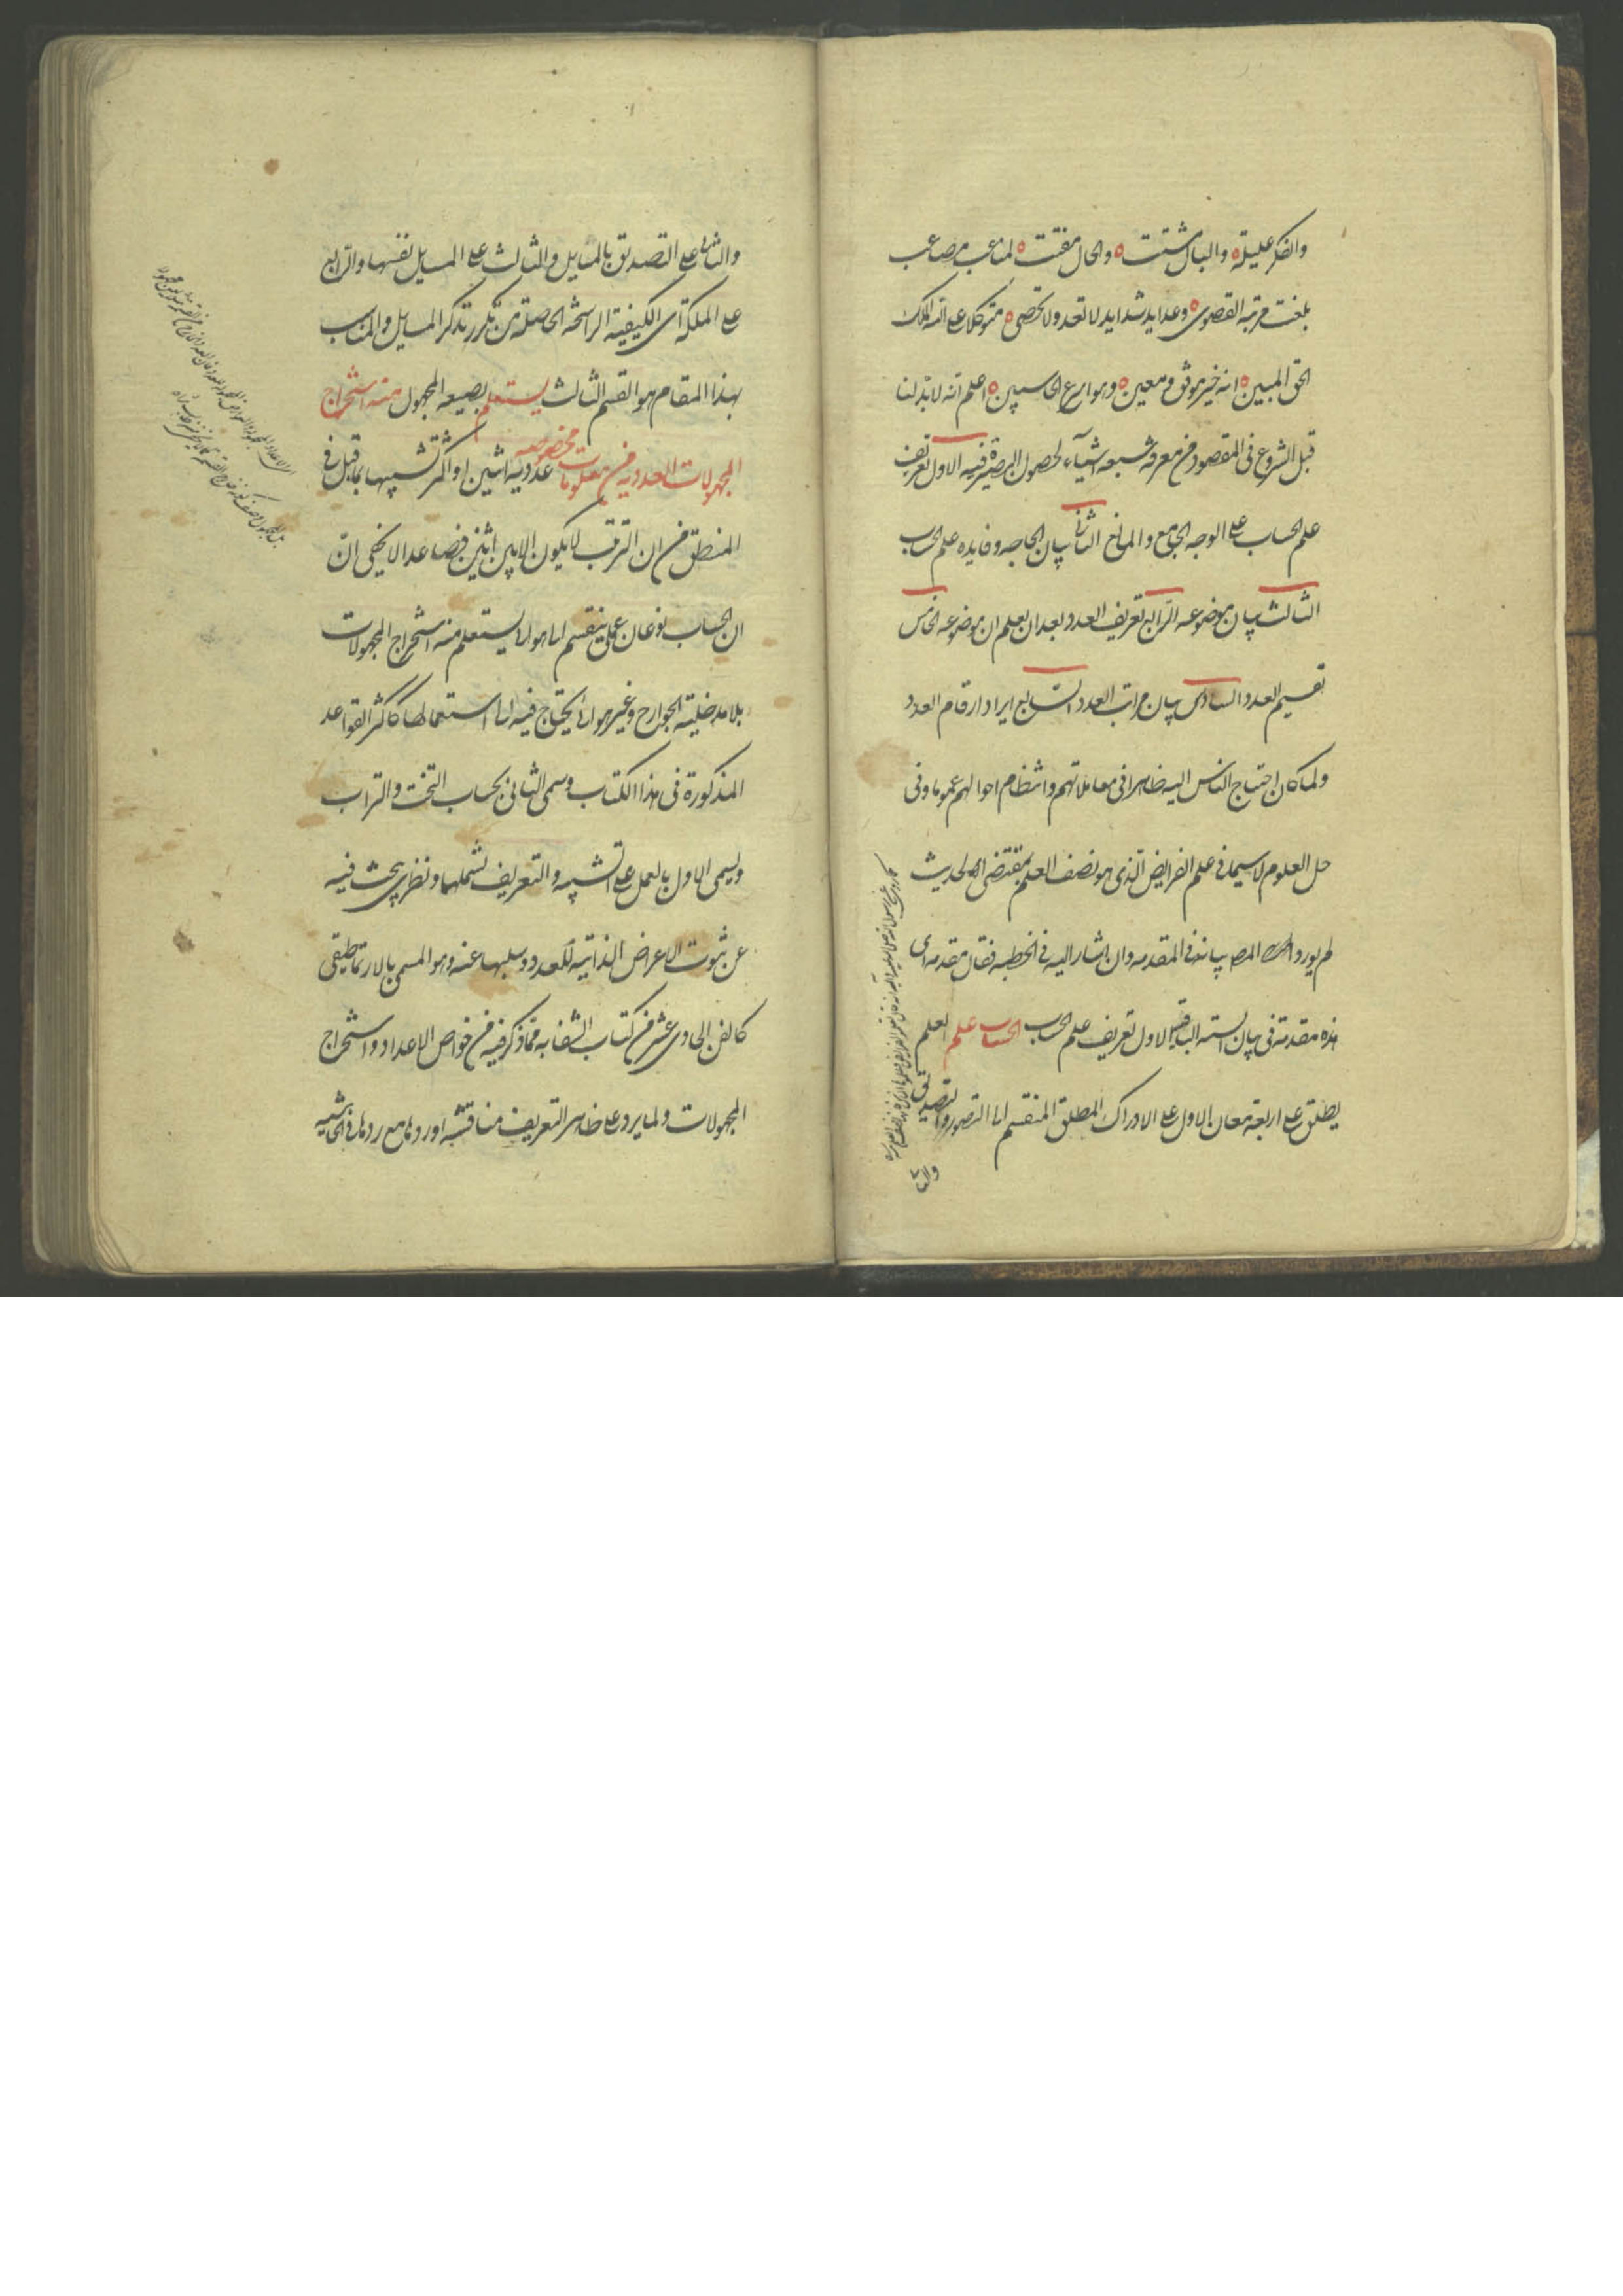 والفكر عليلة والبال مشتت والحال مفتت لمتاعب مصاعب
بلغت مرتبه القصوى وعدايد شدايد لا تعد ولا تحصى متوكلا على الله الملك
الحق المبين انه خير موفق ومعين وهو اسرع الحاسبين اعلم انه لا بد لنا
قبل الشروع فى المقصود من معرفة سبعه اشيآء لحصول البصيرة فيه الاول تعريف
علم الحساب على الوجه الجامع والمانع الثانى بيان الحاجه وفايده علم الحساب
الثالث بيان موضوعه الرابع تعريف العدد بعد ان يعلم ان موضوعه الخامس
تقسيم العدد السادس بيان مراتب العدد السابع ايراد ارقام العدد
ولما كان احتياج الناس اليه ظاهرا فى معاملاتهم وانتظام احوالهم عموما وفى
جل العلوم لا سيما فى علم الفرايض الذى هو نصف العلم بمقتضى الحديث
لم يورد المص بيانه فى المقدمه وان اشار اليه فى الخطبه فقال مقدمه اى
هذه مقدمة فى بيان الستة الباقية الاول تعريف علم الحساب الحساب علم العلم
يطلق على اربعة معان الاول على الادراك المطلق المنقسم الى التصور والتصديق
والثانى
والثانى على التصديق بالمسايل والثالث على المسايل نفسها والرابع
على الملكة اى الكيفية الراسخة الحاصلة من تكرر تذكر المسايل والمناسب
بهذا المقام هو القسم الثالث يستعلم بصيغه المجهول منه استخراج
المجهولات العددية من معلومات مخصوصه عدديه اثنين او اكثر تشبيها بما قيل فى
المنطق من ان الترتيب لا يكون الا بين اثنين فصاعدا لا يخفى ان
ان الحساب نوعان عملى ينقسم الى هوائى يستعلم منه استخراج المجهولات
بلا مدخلية الجوارح وغير هوائى يحتاج فيه الى استعمالها كاكثر القواعد
المذكورة فى هذا الكتاب وسمى الثانى بحساب التخت والتراب
ويسمى الاول بالعمل على التشبيه والتعريف يشملهما ونظرى يبحث فيه
عن ثبوت الاعراض الذاتية للعدد وسلبها عنه وهو المسمى بالارتماطيقى
كالفن الحادى عشر من كتاب الشفا به مما ذكر فيه من خواص الاعداد واستخراج
المجهولات ولما يرد على ظاهر التعريف مناقشه اوردها مع ردها فى الحاشيه